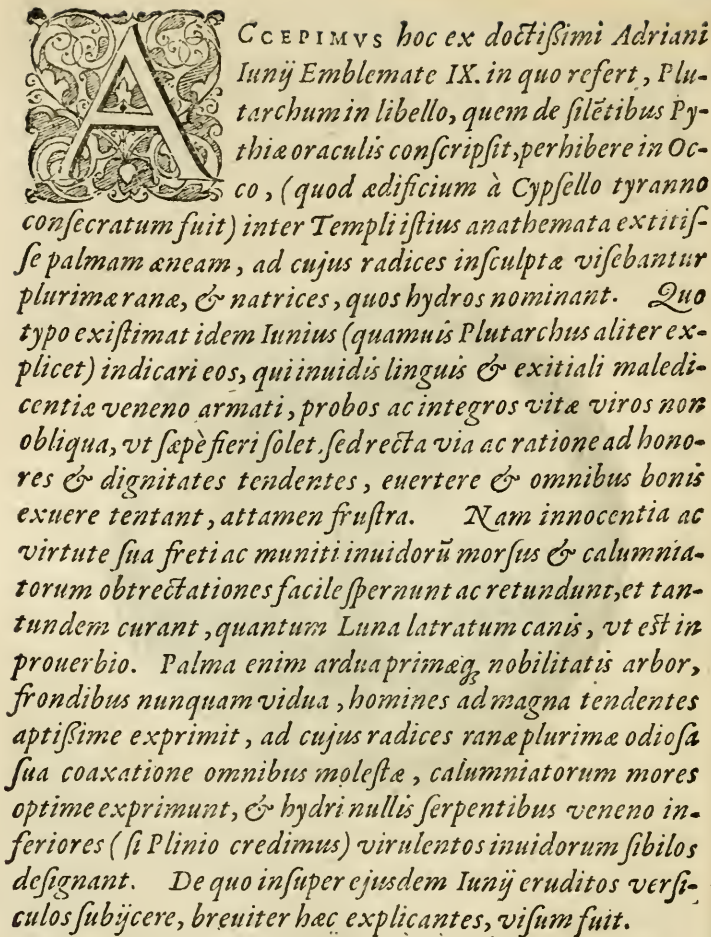 ACCEPIMVS hoc ex doctißimi Adriani
Iunij Emblemate IX. in quo refert, Plu-
tarchum in libello, quem de ſilētibus Py-
thiæ oraculis conſcripſit, perhibere in Oc-
co, (quod ædificium à Cypſello tyranno
conſecratum fuit) inter Templi iſtius anathemata extitiſ-
ſe palmam æneam, ad cujus radices inſculptæ viſebantur
plurimæ ranæ, & natrices, quos hydros nominant. Quo
typo exiſtimat idem Iunius (quamuis Plutarchus aliter ex-
plicet) indicari eos, qui inuidis linguis & exitiali maledi-
centiæ veneno armati, probos ac integros vitæ viros non
obliqua, vt ſæpè fieri ſolet, ſed recta via ac ratione ad hono-
res & dignitates tendentes, euertere & omnibus bonis
exuere tentant, attamen fruſtra. Nam innocentia ac
virtute ſua freti ac muniti inuidorū morſus & calumnia-
torum obtrectationes facile ſpernunt ac retundunt, et tan-
tundem curant, quantum Luna latratum canis, vt eſt in
prouerbio. Palma enim ardua primæq; nobilitatis arbor,
frondibus nunquam vidua, homines ad magna tendentes
aptißime exprimit, ad cujus radices ranæ plurimæ odioſa
ſua coaxatione omnibus moleſtæ, calumniatorum mores
optime exprimunt, & hydri nullis ſerpentibus veneno in-
feriores (ſi Plinio credimus) virulentos inuidorum ſibilos
deſignant. De quo inſuper ejusdem Iunij eruditos verſi-
culos ſubijcere, breuiter hæc explicantes, viſum fuit.